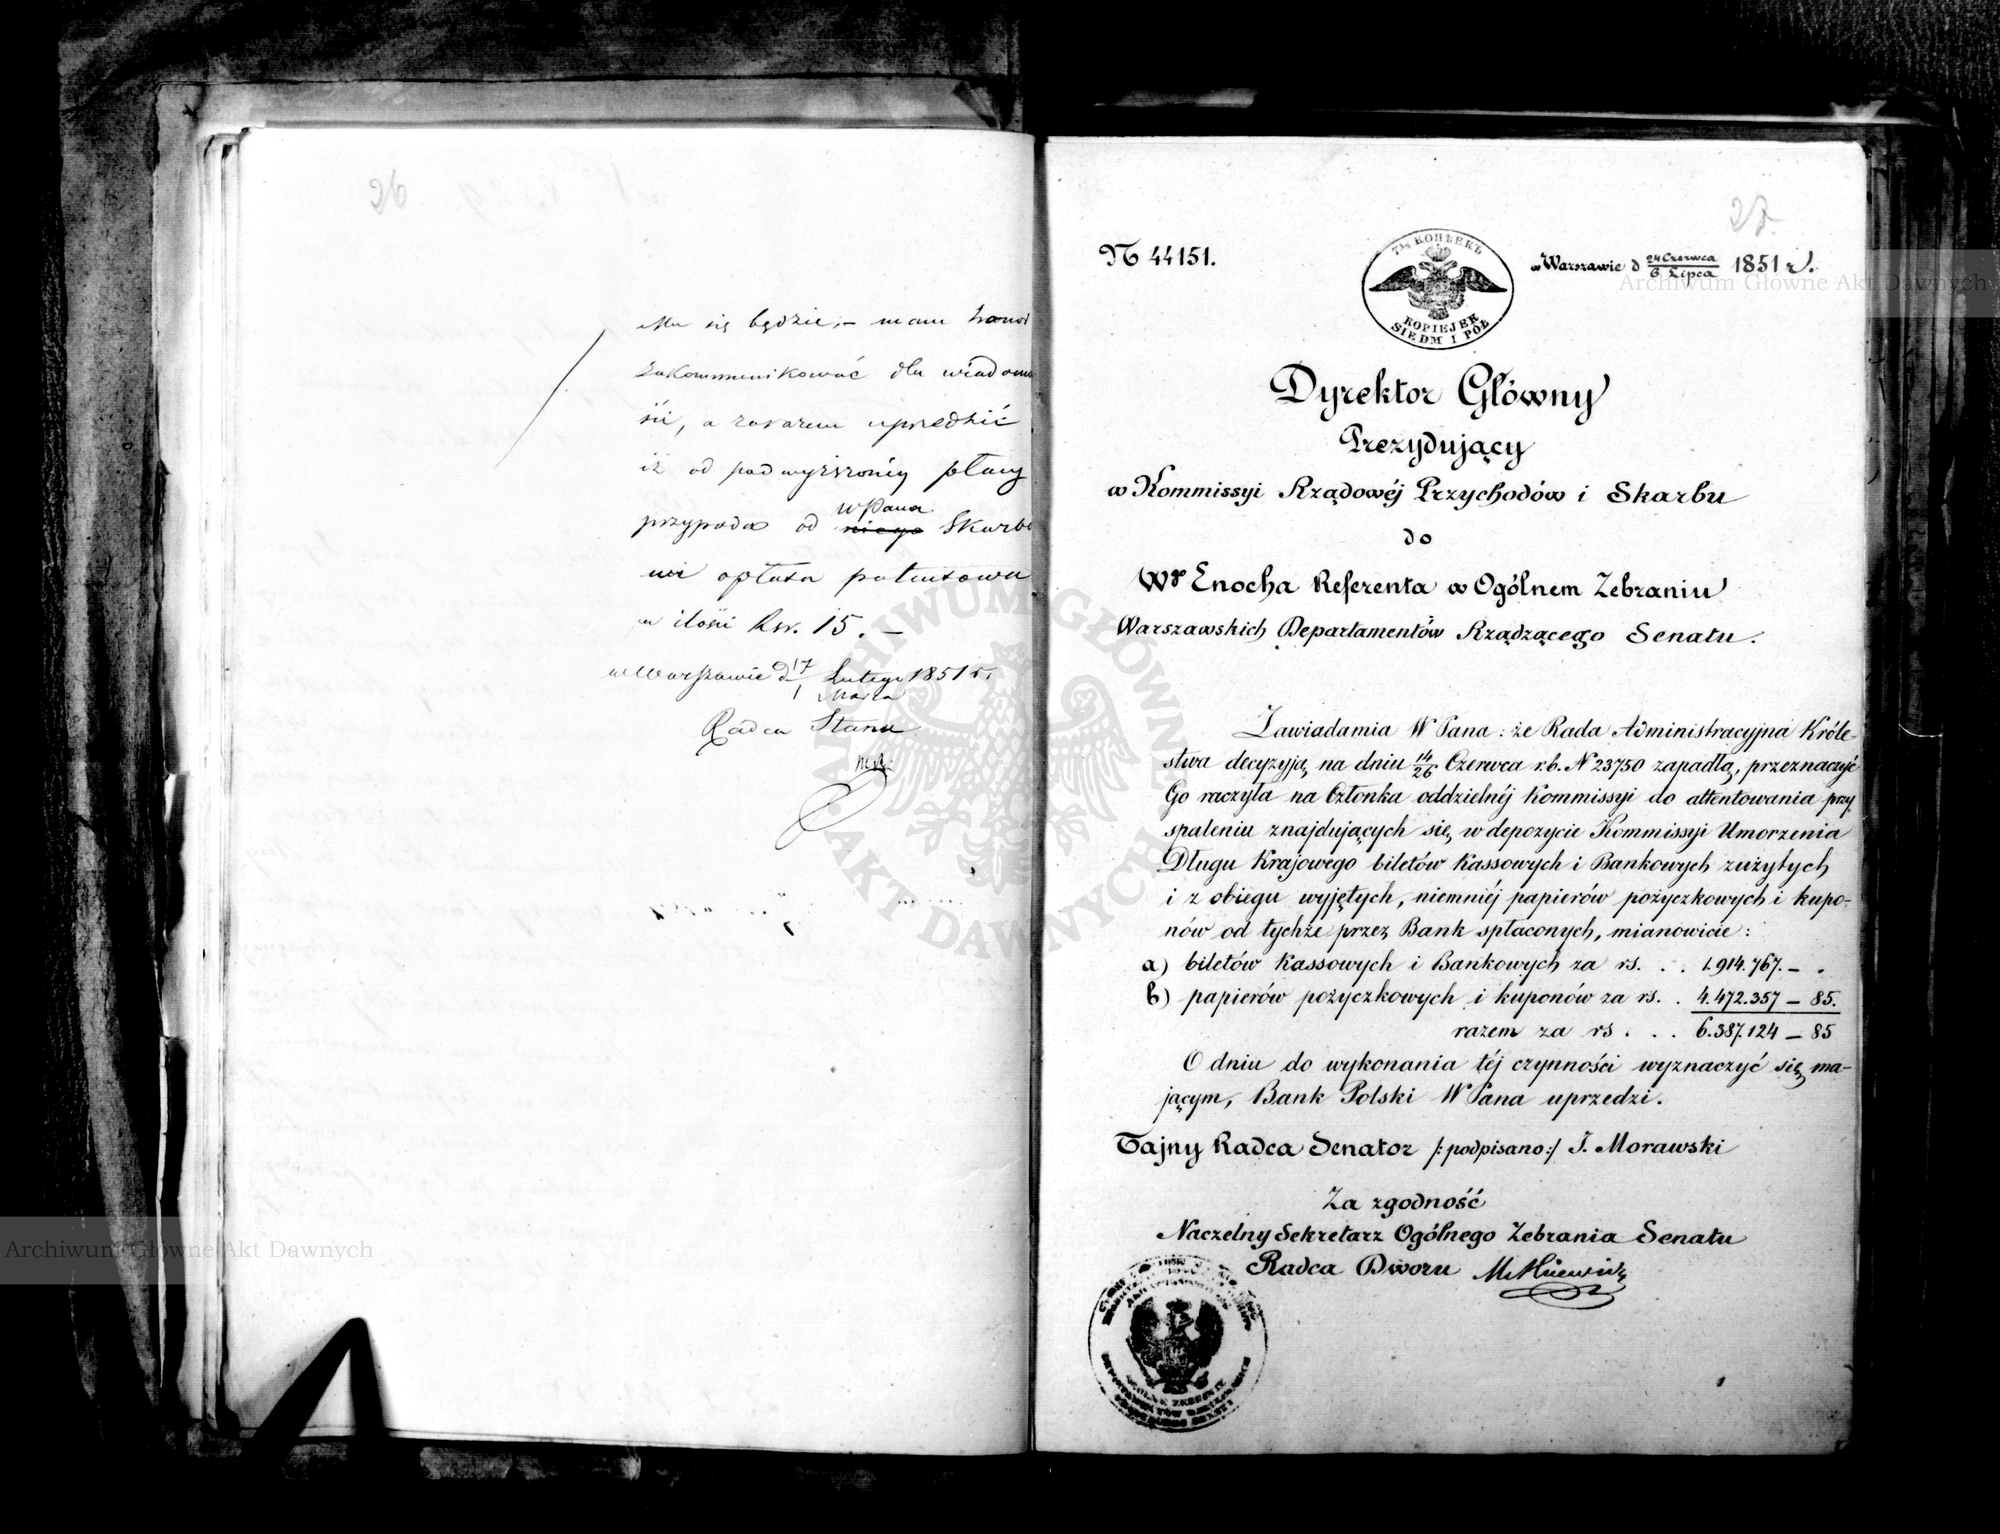 26
się będzie, – mam honor
zakommunikować dla wiadomo
ści, a zarazem uprzedzić
iż od podwyższonéj płacy
WPana
przypada od niego Skarbo
wi opłata patentowa
w ilości Rsr. 15. –
w Warszawie d 17/1 Lutego/Marca 1851 r.
Radca Stanu
27.
N 44151.
7½ КОПѢЕКЪ
KOPIEJEK
SIEDM I PÓŁ
w Warszawie d 24 Czerwca/6 Lipca 1851 r.
Dyrektor Główny
Prezydujący
w Kommissyi Rządowéj Przychodów i Skarbu
do
Wo Enocha Referenta w Ogólnem Zebraniu
Warszawskich Departamentów Rządzącego Senatu.
Zawiadamia WPana: że Rada Administracyjna Króle-
stwa decyzyją na dniu 14/26 Czerwca r.b. N 23750 zapadłą, przeznaczyć
Go raczyła na Członka oddzielnéj Kommissyi do attentowania przy
spaleniu znajdujących się w depozycie Kommissyi Umorzenia
Długu Krajowego biletów Kassowych i Bankowych zużytych
i z obiegu wyjętych, niemniéj papierów pożyczkowych i kupo-
nów od tychże przez Bank spłaconych, mianowicie:
a) biletów Kassowych i Bankowych za rs. . . 1.914.767. – .
b) papierów pożyczkowych i kuponów za rs. . 4.472.357 – 85.
razem za rs . . . 6.387.124 – 85
O dniu do wykonania téj czynności wyznaczyć się ma-
jącym, Bank Polski WPana uprzedzi.
Tajny Radca Senator /:podpisano:/ J. Morawski
Za zgodność
Naczelny Sekretarz Ogólnego Zebrania Senatu
Radca Dworu
Archiwum Główne Akt Dawnych
Archiwum Główne Akt Dawnych
ARCHIWUM GŁÓWNE AKT DAWNYCH